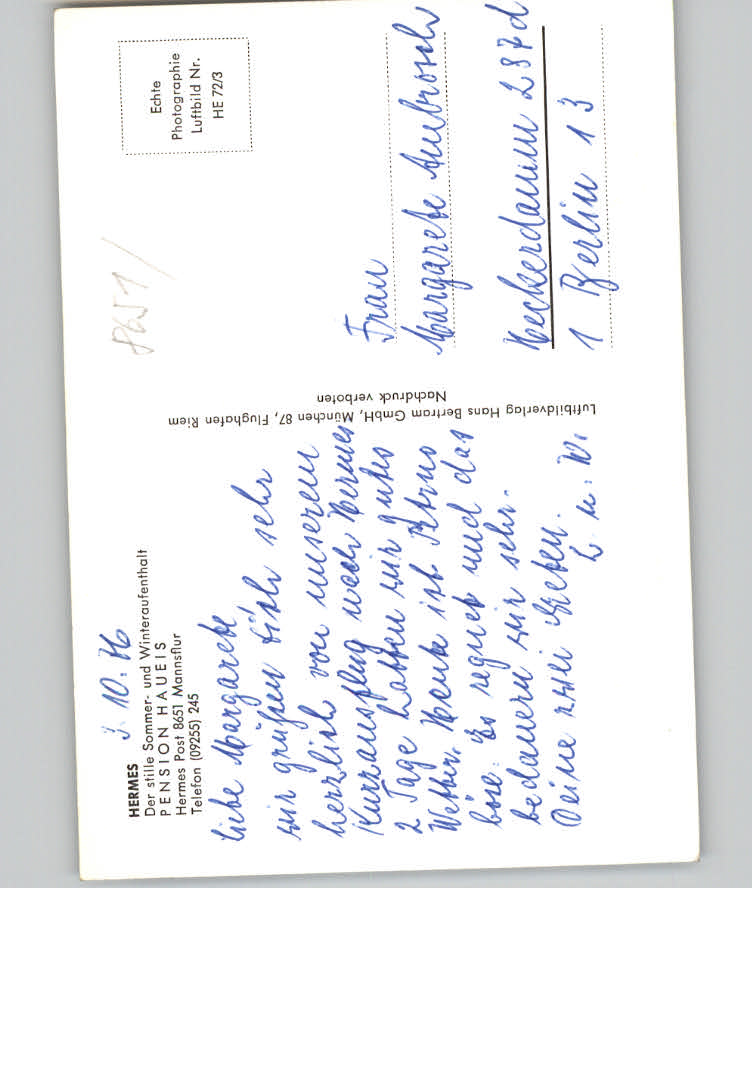 HERMES
Der stille Sommer- und Winteraufenthalt
PENSION HAUEIS
Hermes Post 8651 Mannsflur
Telefon (09255) 245
3. 10. 76
Liebe Margarete
wir grüßen Dich sehr
herzlich von unserem
Kurzausflug nach Hermes
2 Tage hatten wir gutes
Wetter. Heute ist Petrus
böse. Es regnet und das
bedauern wir sehr.
Deine zwei Lieben.
L. u. W.
Luftbildverlag Hans Bertram GmbH, München 87, Flughafen Riem
Nachdruck verboten
8651
Echte
Photographie
Luftbild Nr.
HE 72/3
Frau
Margarete Ambrosch
Heckerdamm 287d
1 Berlin 13